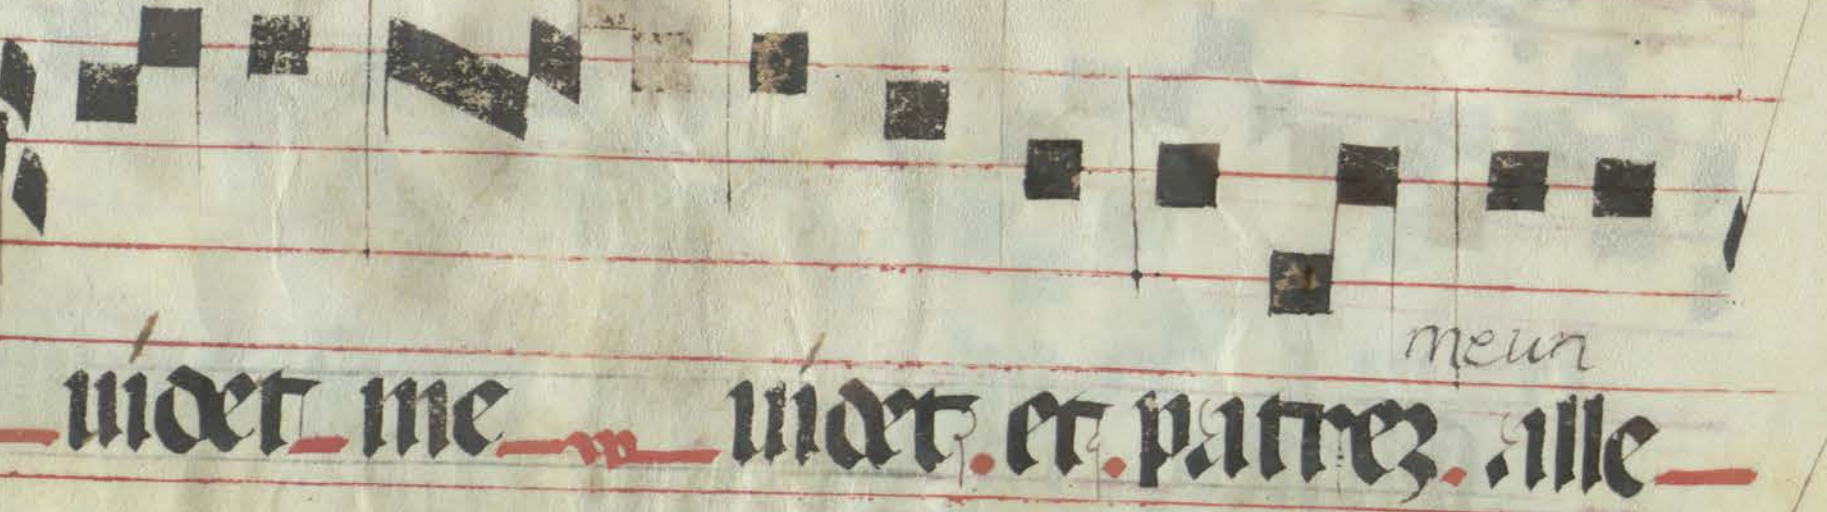 meun
uidet me uidet . et . patrez . alle